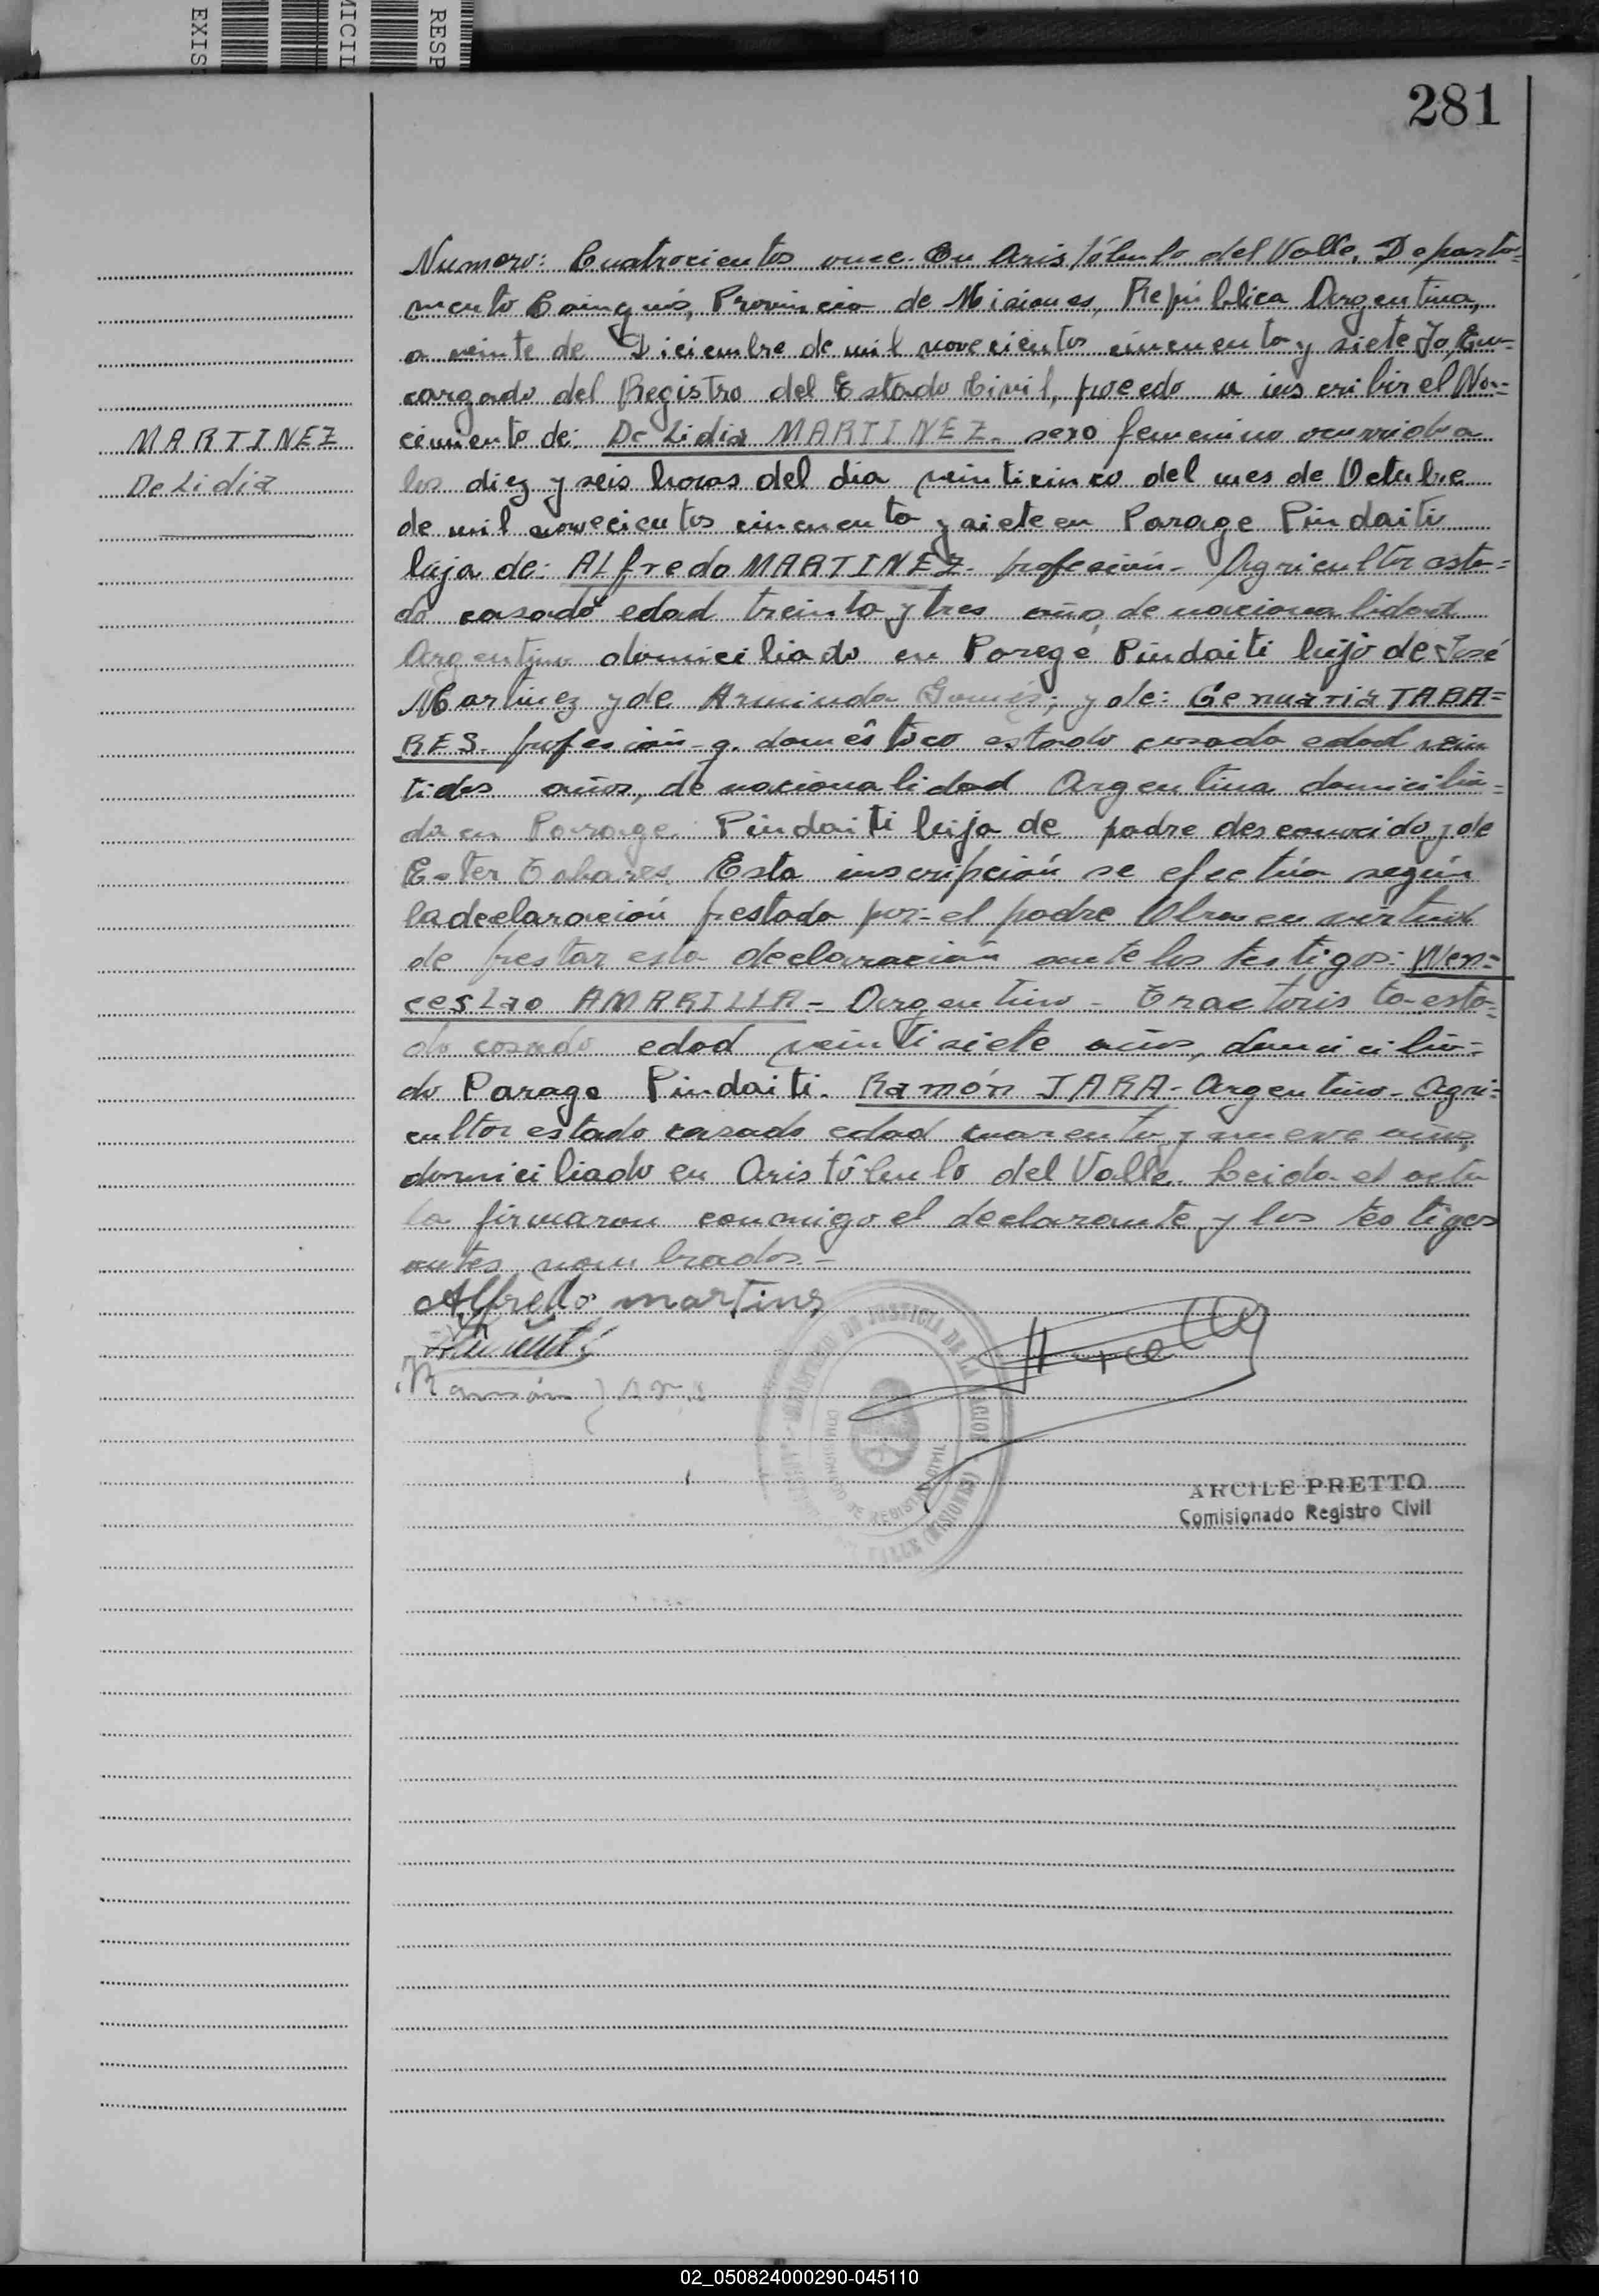 EXIS
MICIL
RESP
281
Numero: Cuatrocientos once. En Aristóbulo del Valle, Departa-
mento Cainguás, Provincia de Misiones, República Argentina,
a veinte de Diciembre de mil novecientos cincuenta y siete Yo, En-
cargado del Registro del Estado Civil, procedo a inscribir el Na-
MARTINEZ
De Lidia
cimiento de: De Lidia MARTINEZ. sexo femenino ocurrido a
las diez y seis horas del dia veinticinco del mes de Octubre
de mil novecientos cincuenta y siete en Parage Pindaiti
hija de: ALfredo MARTINEZ- profesión- Agricultor esta=
do casado edad treinta y tres años, de nacionalidad
Argentino domiciliado en Parege Pindaiti hijo de José
Martinez y de Arminda Gomés; y de: Genuaria TABA=
RES. profesión- q. doméstico estado casada edad vein
tidos años, de nacionalidad Argentina domicilia=
da en Parage Pindaiti hija de padre desconocido y de
Ester Tabares. Esta inscripción se efectúa según
la declaración prestada por: el padre Obra en virtud
de prestar esta declaración ante los testigos: Wen=
cesLao AMARILLA- Argentino- Tractorista- esta=
do casado edad veintisiete años, domicilia=
do Parage Pindaiti. Ramón JARA- Argentino- Agri=
cultor estado casado edad cuarenta y nueve años,
domiciliado en Aristóbulo del Valle. Leida el acta
la firmaron conmigo el declarante y los testigos
antes nombrados.-
Alfredo martinz
Ramón Jara
MINISTERIO DE JUSTICIA DE LA NACION
VALLE (MISIONES)
ARCILE PRETTO
Comisionado Registro Civil
02_050824000290-045110